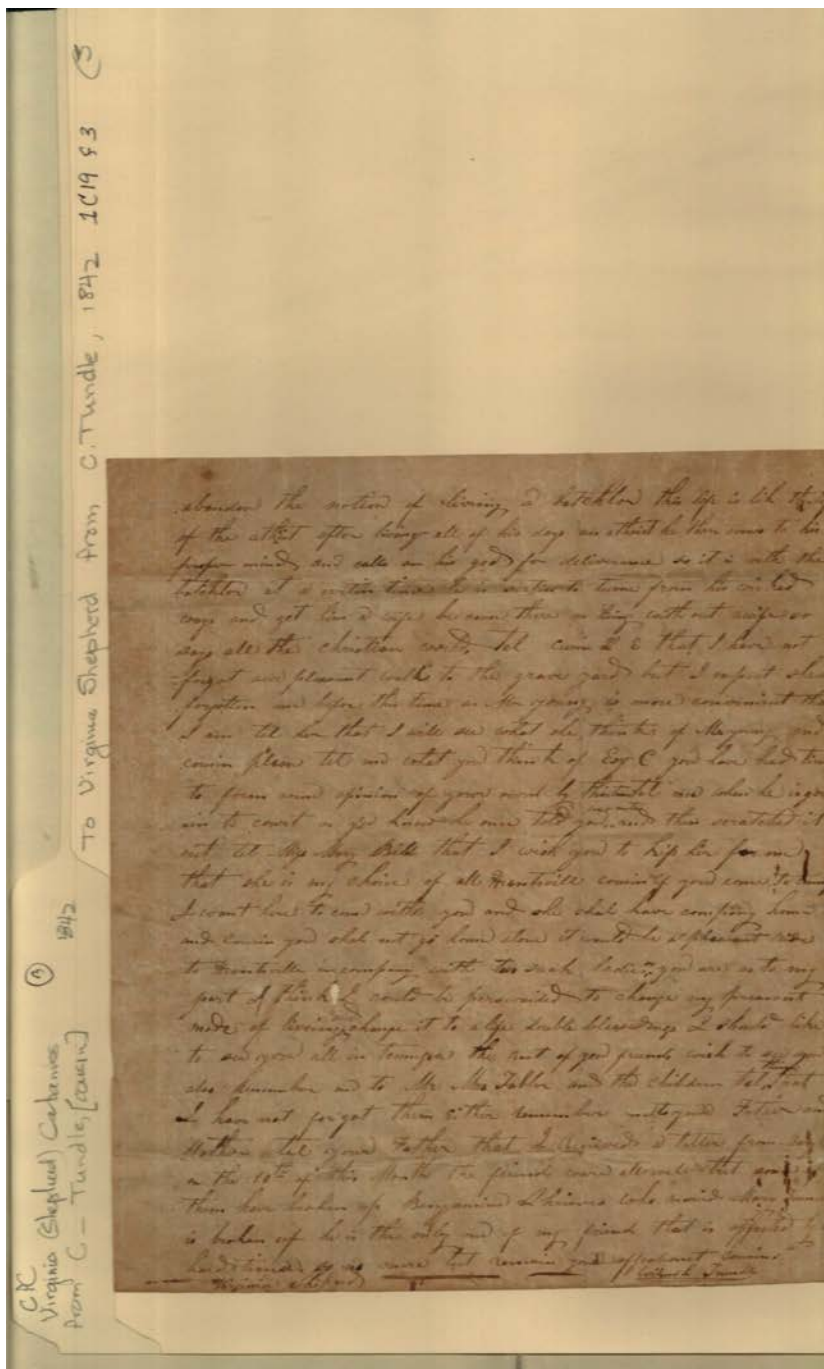 C. PC
Virginia (Shepherd) Cabaniss
from C — Tundle, [cousin]
1842
To Virginia Shepherd from C. Tundle, 1842 2C19 43 (3
abandon the notion of living a batchlor this life is lik
of the athist after living all of his days an athist he then comes to his
proper mind and calls on his god for deliverance so it is with the
batchlor at a certin time he is to turn from his wicked
ways and get him a wife because there no with out wife or
says all the christian world. Tel Cusin L E that I have not
forgot our pleasant walk to the grave yard but I expect she
forgotten me before this time as Mr young is more convenient
I am tel her that I will see what she thinks of Mr young and
cousin please tel me what you think of Esq C you have had
to form some opinion of your own by tel me when he is
to court as you know he once told you and then scratched it
out tel Miss Bill that I wish you to for me
that she is my choice of all Huntsville cousin if you come to
I want her to come with you and she shal have company home
and cousin you shal not go home alone it would be a pleasant ride
to Huntsville in company with two such ladies you are as to my
part I think I could be perswaided to change my preasant
mode of living change it to a life double blessedings I should like
to see you all in the rest of you friends wish to see you
also remember me to Mr Mrs Tabler and the children tel that
I have not forgot them either remember me to your Father and
Mother tel your Father that I recieved a letter from
on the 10th of this Month the friends were all well but some of
them have broken up Benjamine who maried Mary
is broken up he is the only one of my friends that is effected by
hard times so no more but remain your affectionat Cousin
Virginia Shepherd